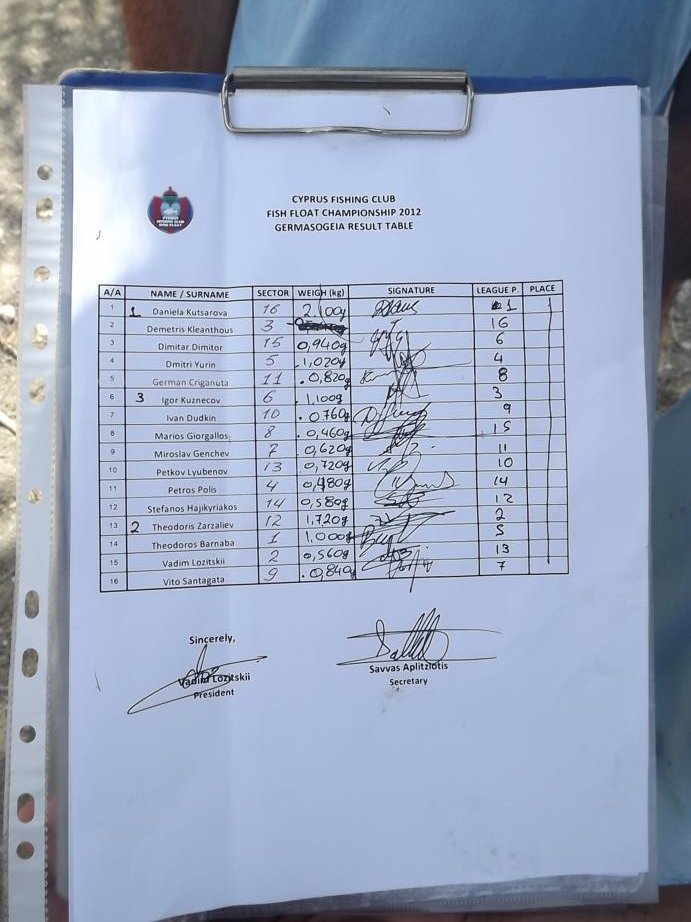 CYPRUS FISHING CLUB
FISH FLOAT CHAMPIONSHIP 2012
GERMASOGEIA RESULT TABLE
A/A NAME / SURNAME SECTOR WEIGH (kg) SIGNATURE LEAGUE P. PLACE
1 1 Daniela Kutsarova 16 2,100g 1
2 Demetris Kleanthous 3 16
3 Dimitar Dimitor 15 0,940g 6
4 Dmitri Yurin 5 1,020g 4
5 German Criganuta 11 0,820g 8
6 3 Igor Kuznecov 6 1,100g 3
7 Ivan Dudkin 10 0,760g 9
8 Marios Giorgallos 8 0,460g 15
9 Miroslav Genchev 7 0,620g 11
10 Petkov Lyubenov 13 0,720g 10
11 Petros Polis 4 0,480g 14
12 Stefanos Hajikyriakos 14 0,580g 12
13 2 Theodoris Zarzaliev 12 1,720g 2
14 Theodoros Barnaba 1 1,000g 5
15 Vadim Lozitskii 2 0,560g 13
16 Vito Santagata 9 0,840g 7
Sincerely,
Vadim Lozitskii
President
Savvas Aplitziotis
Secretary